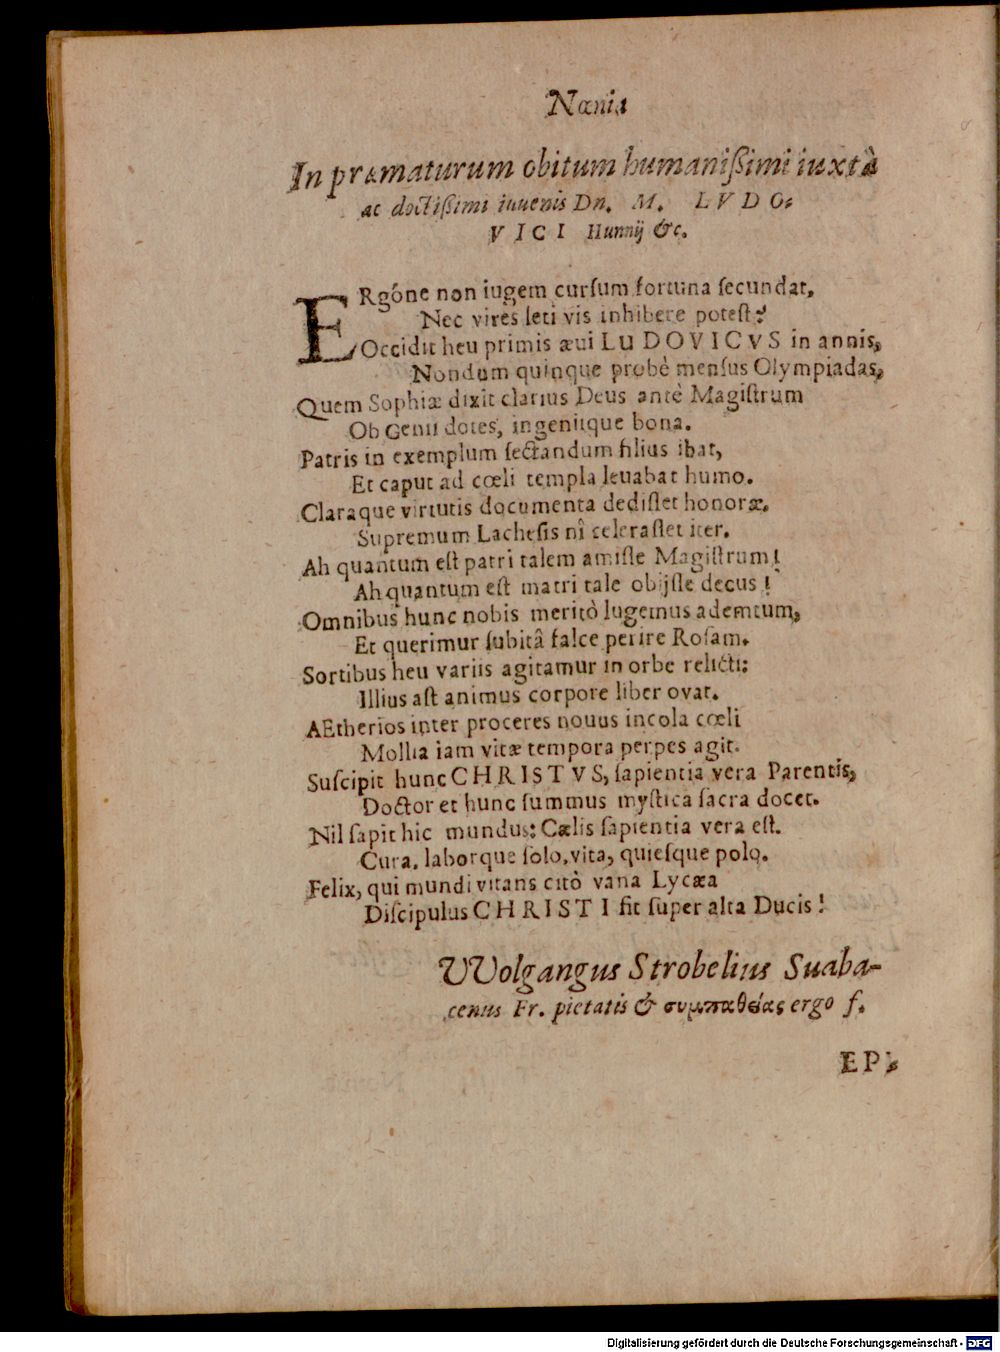 Nænia
In præmaturum obitum humanißimi iuxtà
ac doctißimi iuuenis Dn. M. LVDO-
VICI Hunnij &c.
ERgóne non iugem curſum fortuna ſecundat,
Nec vires leti vis inhibere poteſt?
Occidit heu primis æui LuDOVICVS in annis,
Nondum quinque probè menſus Olympiadas,
Quem Sophiæ dixit clarius Deus antè Magiſtrum
Ob Genii dotes, ingeniique bona.
Patris in exemplum ſectandum filius ibat,
Et caput ad cœli templa leuabat humo.
Claraque virtutis documenta dediſſet honoræ,
Supremum Lacheſis nî celeraſſet iter.
Ah quantum eſt patri talem amiſſe Magiſtrum!
Ah quantum eſt matri tale obijſſe decus!
Omnibus hunc nobis meritò lugemus ademtum,
Et querimur ſubitâ falce perire Roſam.
Sortibus heu variis agitamur in orbe relicti:
Illius aſt animus corpore liber ovat.
AEtherios inter proceres nouus incola cœli
Mollia iam vitæ tempora perpes agit.
Suſcipit hunc CHRISTVS, ſapientia vera Parentis,
Doctor et hunc ſummus myſtica ſacra docet.
Nil ſapit hic mundus: Cælis ſapientia vera eſt.
Cura, laborque ſolo, vita, quieſque polo.
Felix, qui mundi vitans citò vana Lycæa
Diſcipulus CHRISTI fit ſuper alta Ducis!
VVolgangus Strobelius Suaba-
cenus Fr. pietatis & συμπαθείας ergo f.
EPI-
Digitalisierung gefördert durch die Deutsche Forschungsgemeinschaft - DFG